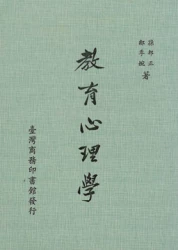 孫邦正
鄒季婉
著
教育心理學
臺灣商務印書館發行